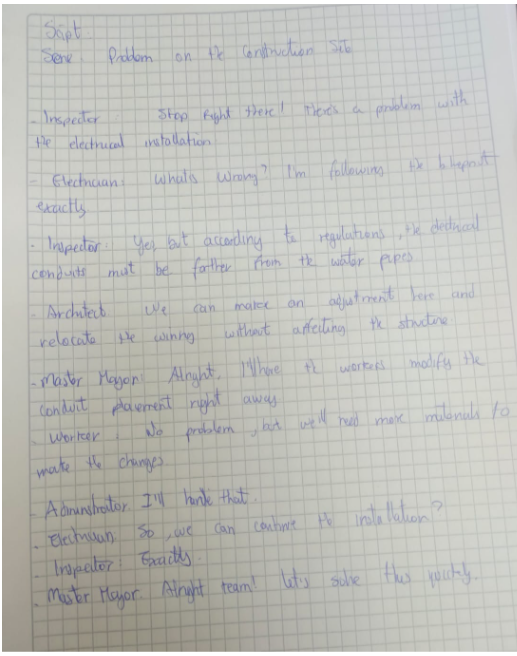 Script
Scene: Problem on the Construction Site
- Inspector Stop right there! There's a problem with
the electrical installation
- Electrician: What's wrong? I'm following the blueprint
exactly
- Inspector: Yes, but according to regulations, the electrical
conduits must be farther from the water pipes
- Architect We can make an adjustment here and
relocate the wiring without affecting the structure
- Master Mayor: Alright. I'll have the workers modify the
conduit placement right away
- Worker: No problem, but we'll need more materials to
make the changes.
- Administrator. I'll handle that.
- Electrician: So, we can continue the installation?
- Inspector: Exactly.
- Master Mayor. Alright team! Let's solve this quickly.